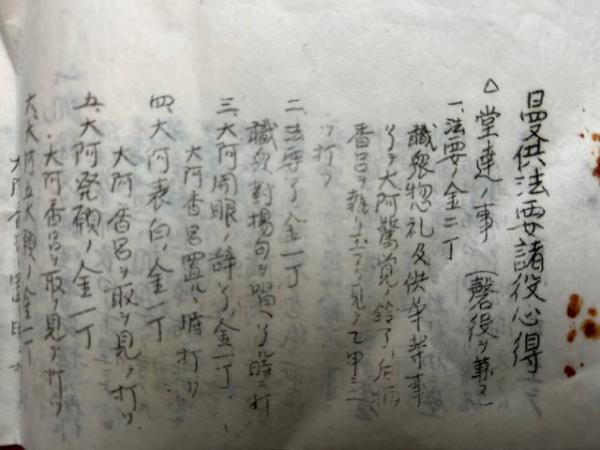 曼供法要諸役心得
△堂達ノ事 (磬役ヲ兼ヌ)
一、法要ノ金二丁
職衆惣礼及供華等事
了テ大阿驚覚ノ鈴了
香呂ヲ執リ
打ツ
二、法要了ノ金一丁
職衆対揚句ヲ唱ヘ了ル時ニ打
三、大阿開眼ノ辞了ノ金一丁
大阿香呂置ク時打ツ
四、大阿表白ノ金一丁
大阿香呂ヲ取ヲ見テ打ツ
五、大阿発願ノ金一丁
大阿香呂ヲ取ヲ見テ打ツ
六、大阿五大願ノ金一丁